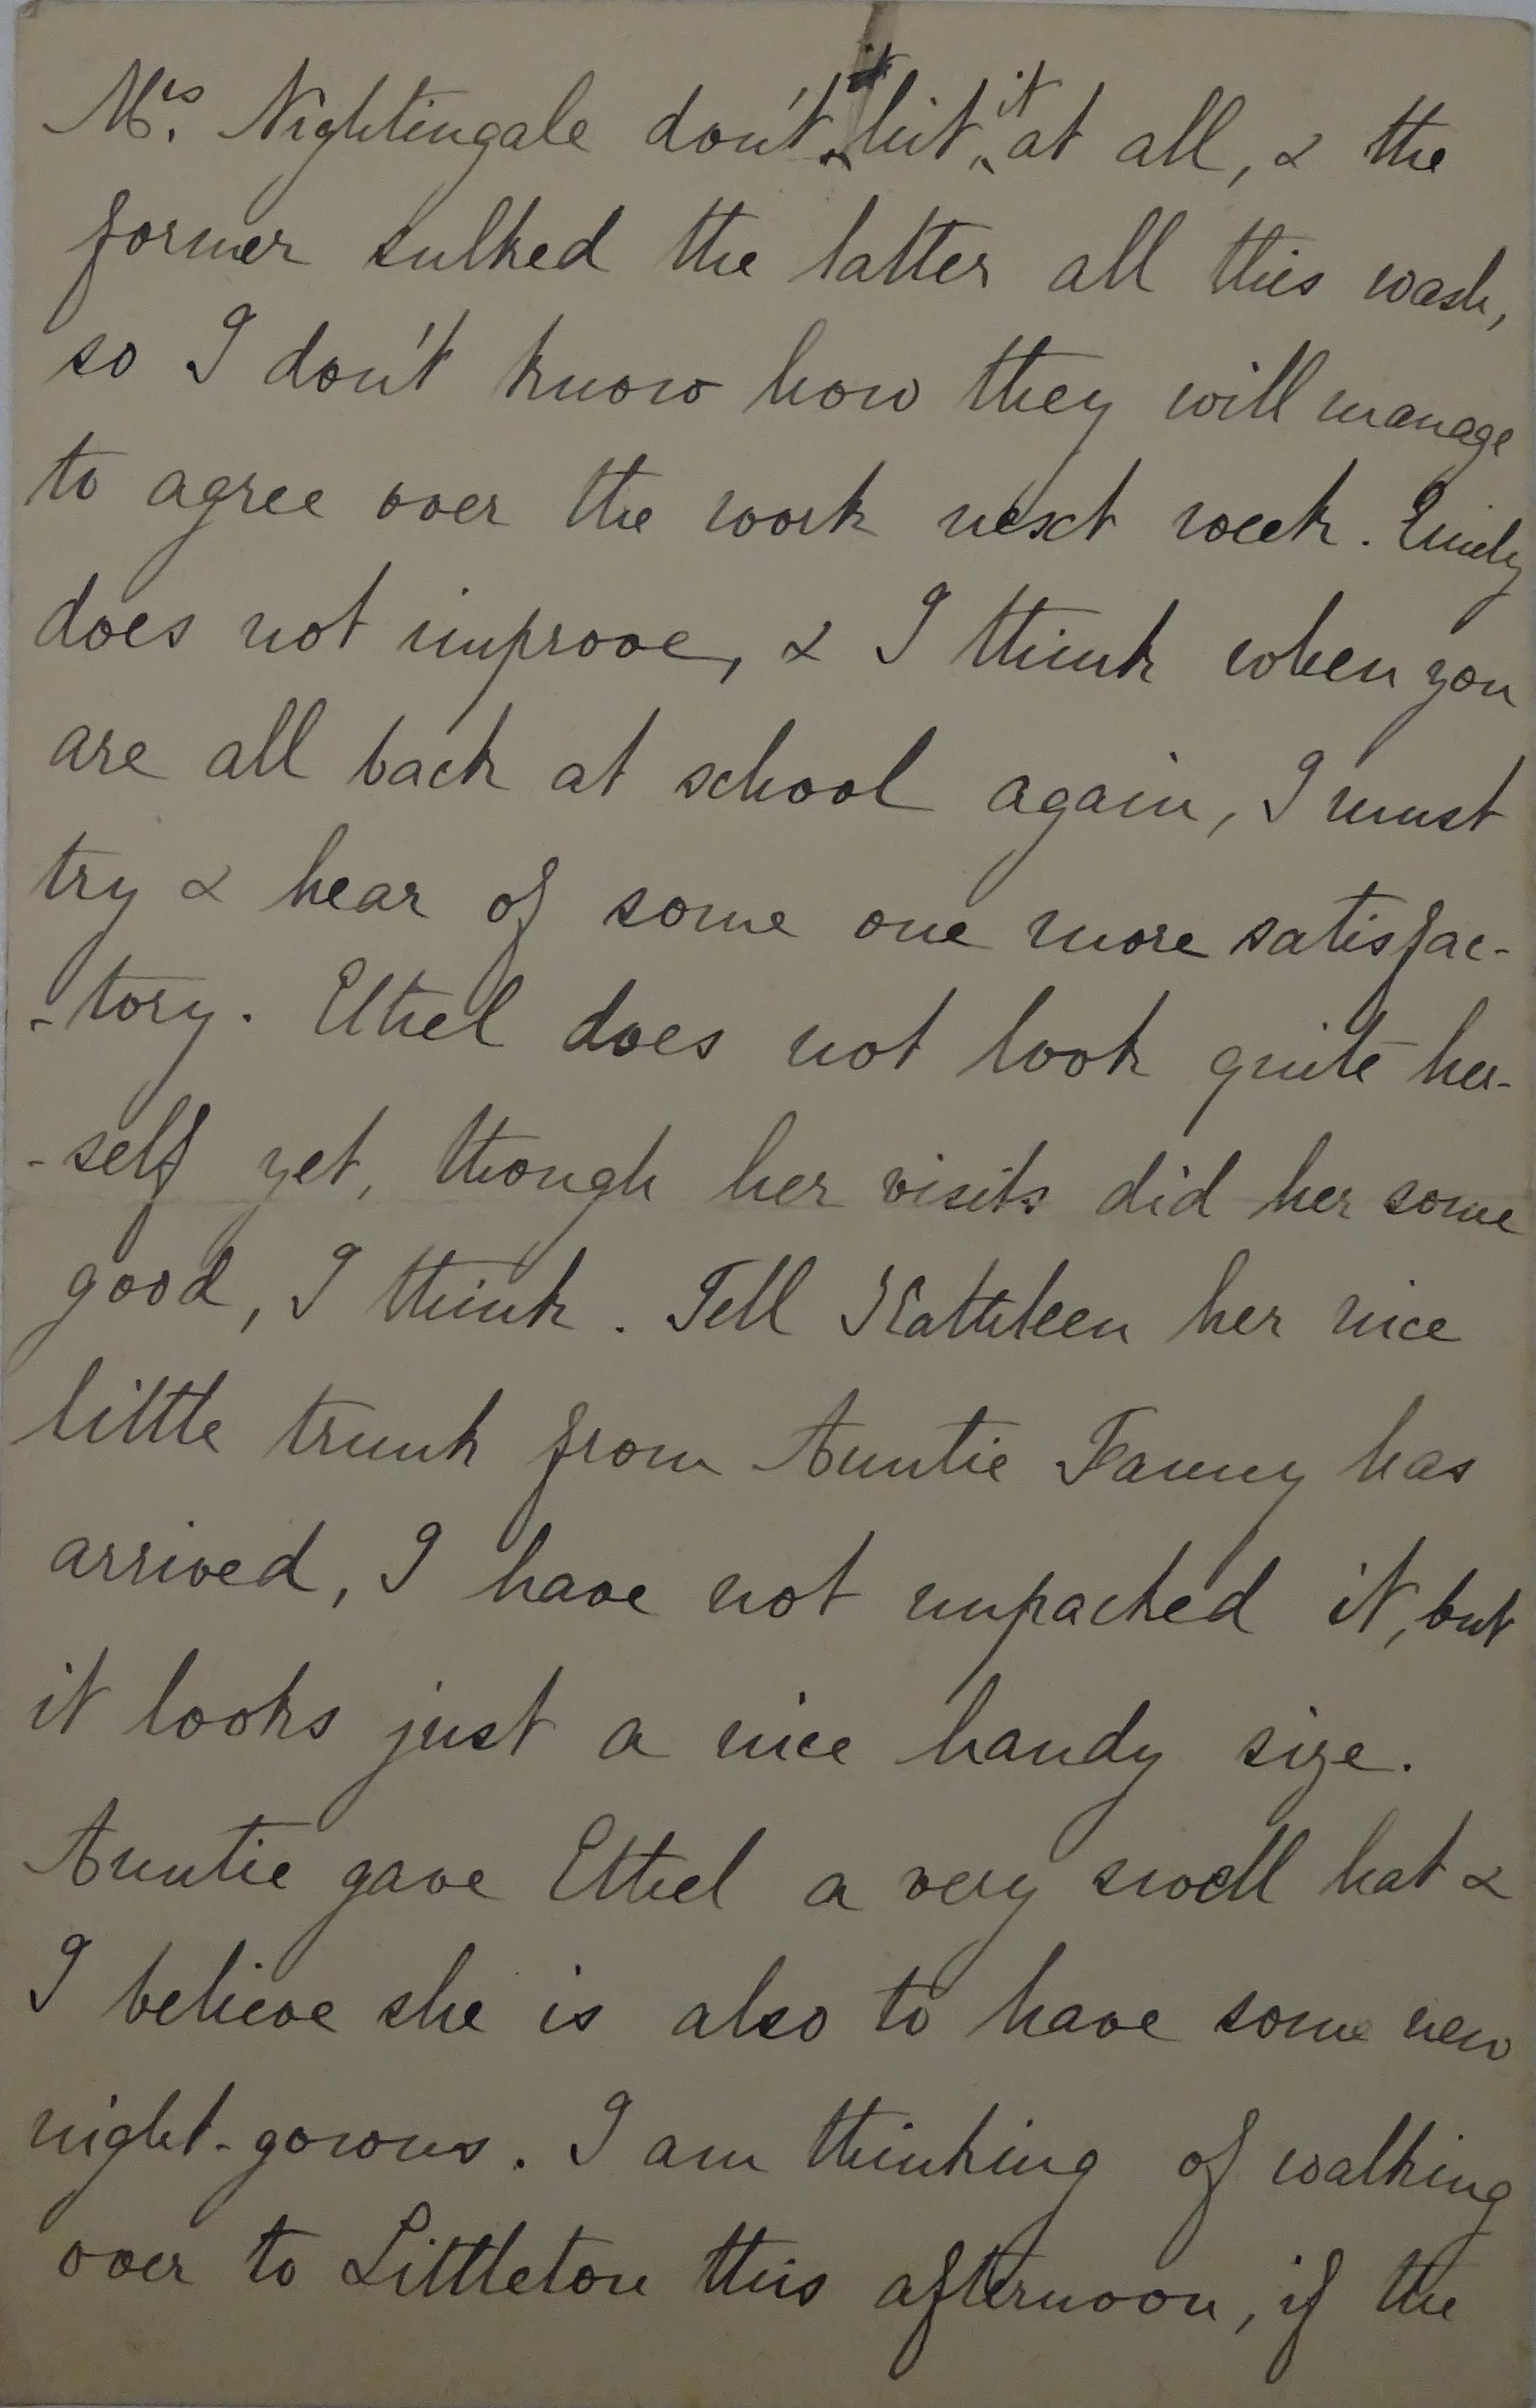 Mrs. Nightingale don't hit it at all, & the
former sulked the latter all this wash,
so I don't know how they will manage
to agree over the work next week. Emily
does not improve, & I think when you
are all back at school again, I must
try & hear of some one more satisfac-
-tory. Ethel does not look quite her-
-self yet, though her visits did her some
good, I think. Tell Kathleen her nice
little trunk from Auntie Fanny has
arrived, I have not unpacked it, but
it looks just a nice handy size.
Auntie gave Ethel a very swell hat &
I believe she is also to have some new
night-gowns. I am thinking of walking
over to Littleton this afternoon, if the